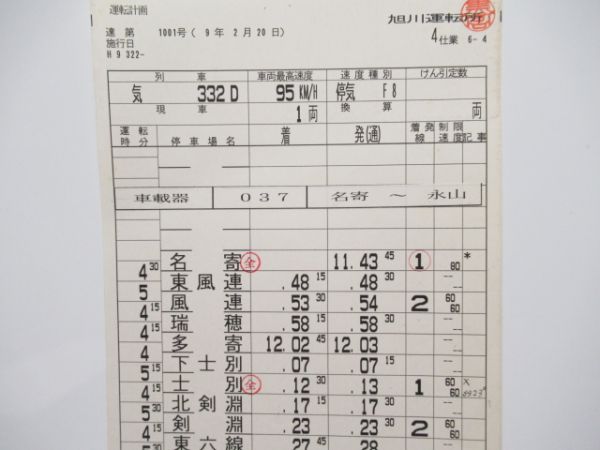 運転計画
旭川運転所
達 第 1001号 ( 9 年 2 月 20 日 )
4仕業 6-4
施行日
H 9 322-
列 車 車両最高速度 速度種別 けん引定数
気 332D 95 KM/H 停気 F8
現 車 1 両 換 算 両
運転時分 停車場名 着 発(通) 着発線 制限速度 記事
車載器 037 名寄 ~ 永山
名 寄 全 11.43 45 1 60 *
4 30
東 風 連 .48 15 .48 30 -- --
5
風 連 .53 30 .54 2 60 60
4 15
瑞 穂 .58 15 .58 30 -- --
4 15
多 寄 12.02 45 12.03 -- --
4
下 士 別 .07 .07 15 -- --
5 15
士 別 全 .12 30 .13 1 60 60 x
4 15
北 剣 淵 .17 15 .17 30 -- --
5 30
剣 淵 .23 .23 30 2 60 60
4 15
東 六 線 .27 45 .28